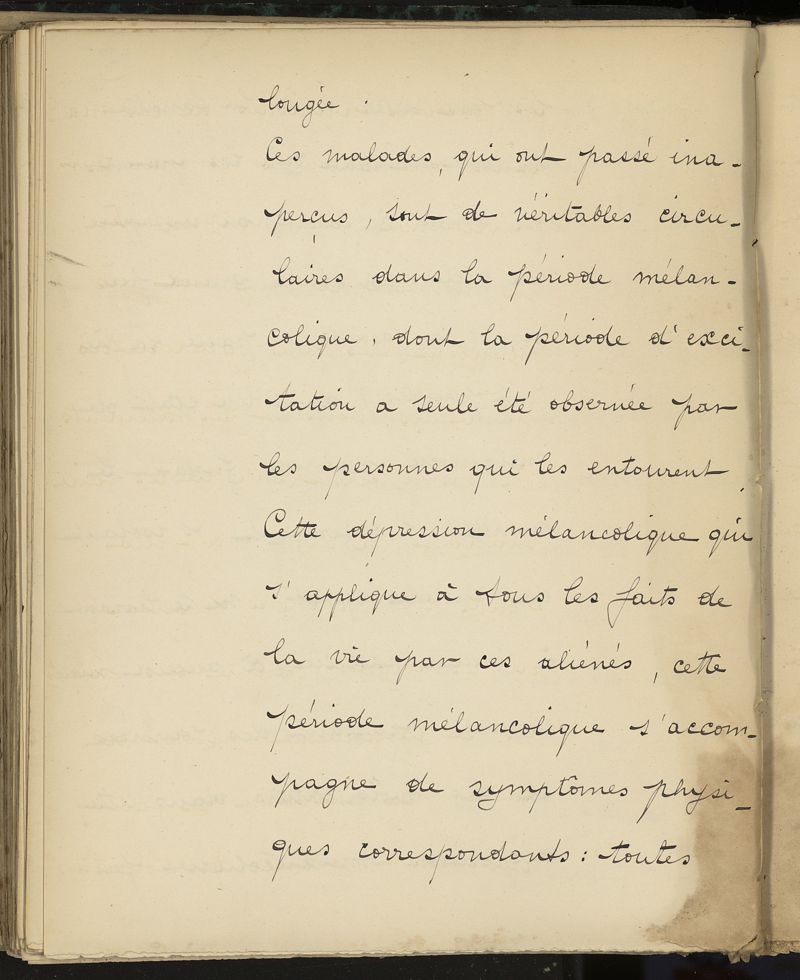 longée.
Ces malades, qui ont passé ina-
perçus, sont de véritables circu-
laires dans la période mélan-
colique, dont la période d'exci-
tation a seule été observée par
les personnes qui les entourent.
Cette dépression mélancolique qui
s'applique à tous les faits de
la vie par ces aliénés, cette
période mélancolique s'accom-
pagne de symptômes physi-
ques correspondants : toutes